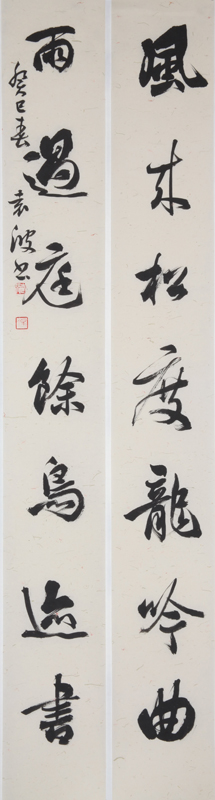 風來松度龍吟曲
雨過庭餘鳥迹書
癸巳春 袁波书